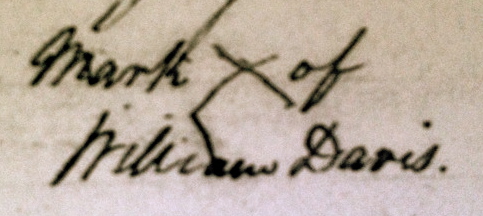 Mark X of
William Davis.